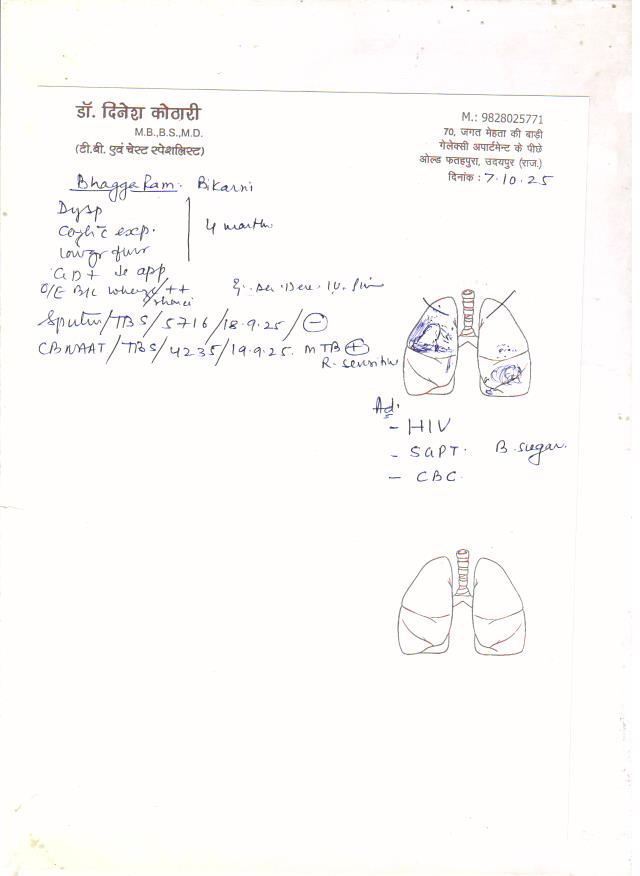 डॉ. दिनेश कोठारी
M.B.,B.S.,M.D.
(टी.बी. एवं चेस्ट स्पेशलिस्ट)
M.: 9828025771
70, जगत मेहता की बाड़ी
गेलेक्सी अपार्टमेन्ट के पीछे
ओल्ड फतहपुरा, उदयपुर (राज.)
दिनांक : 7.10.25
Bhagga Ram. Bikarni
Dysp
exp. 4 month
app
O/E B/L ++
Sputum/TBS/5716/18.9.25/-
CBNAAT/TBS/4235/19.9.25. MTB +
R. sensitive
Ad.
- HIV
- SGPT. B. sugar.
- CBC.